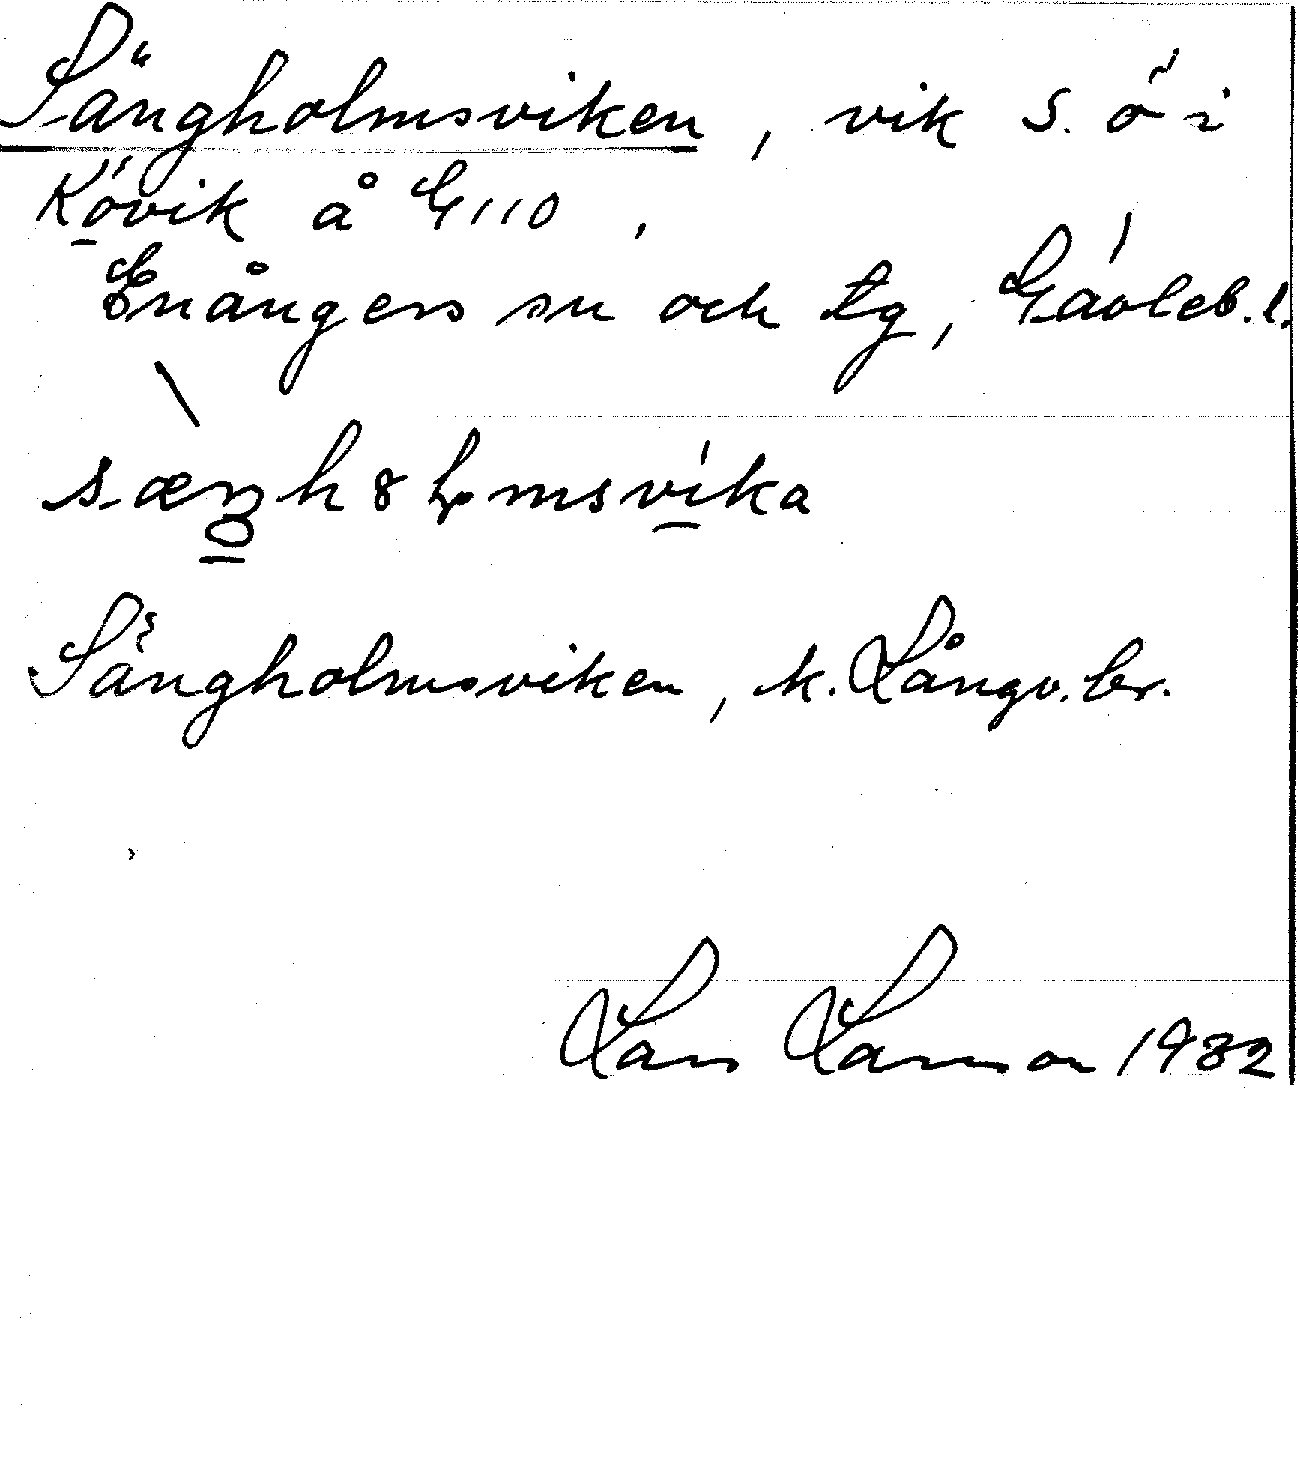 Sängholmsviken, vik s. ö i
Kövik å G 110,
Enångers sn och tg, Gävleb. l.
sængh8lmsvika
Sängholmsviken, k. Långv. br.
Lars Larsson 1932